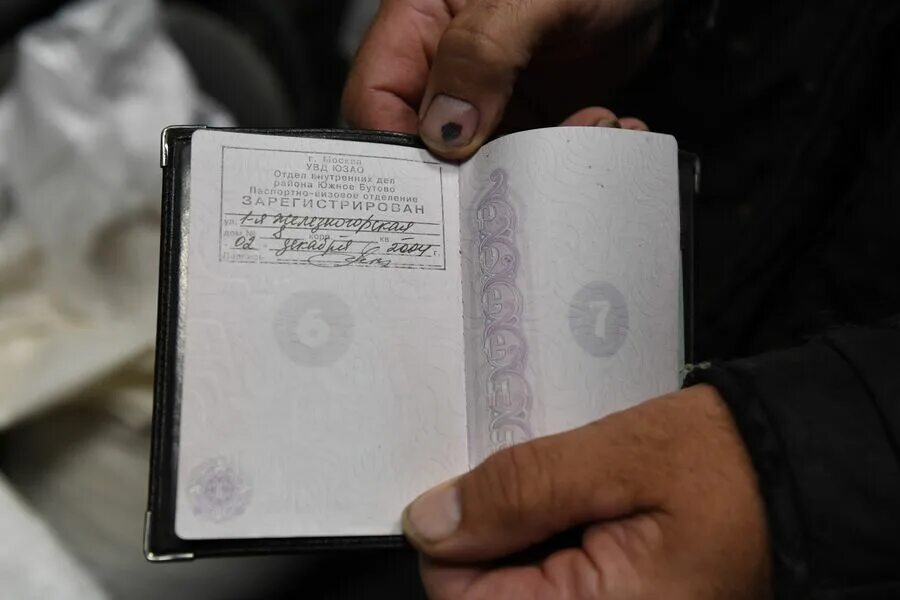 г. Москва
УВД ЮЗАО
Отдел внутренних дел
района Южное Бутово
Паспортно-визовое отделение
ЗАРЕГИСТРИРОВАН
ул. 1-я Железногорская
дом № 8 корп. кв.
02 декабря 2004 г.
Подпись
6
7